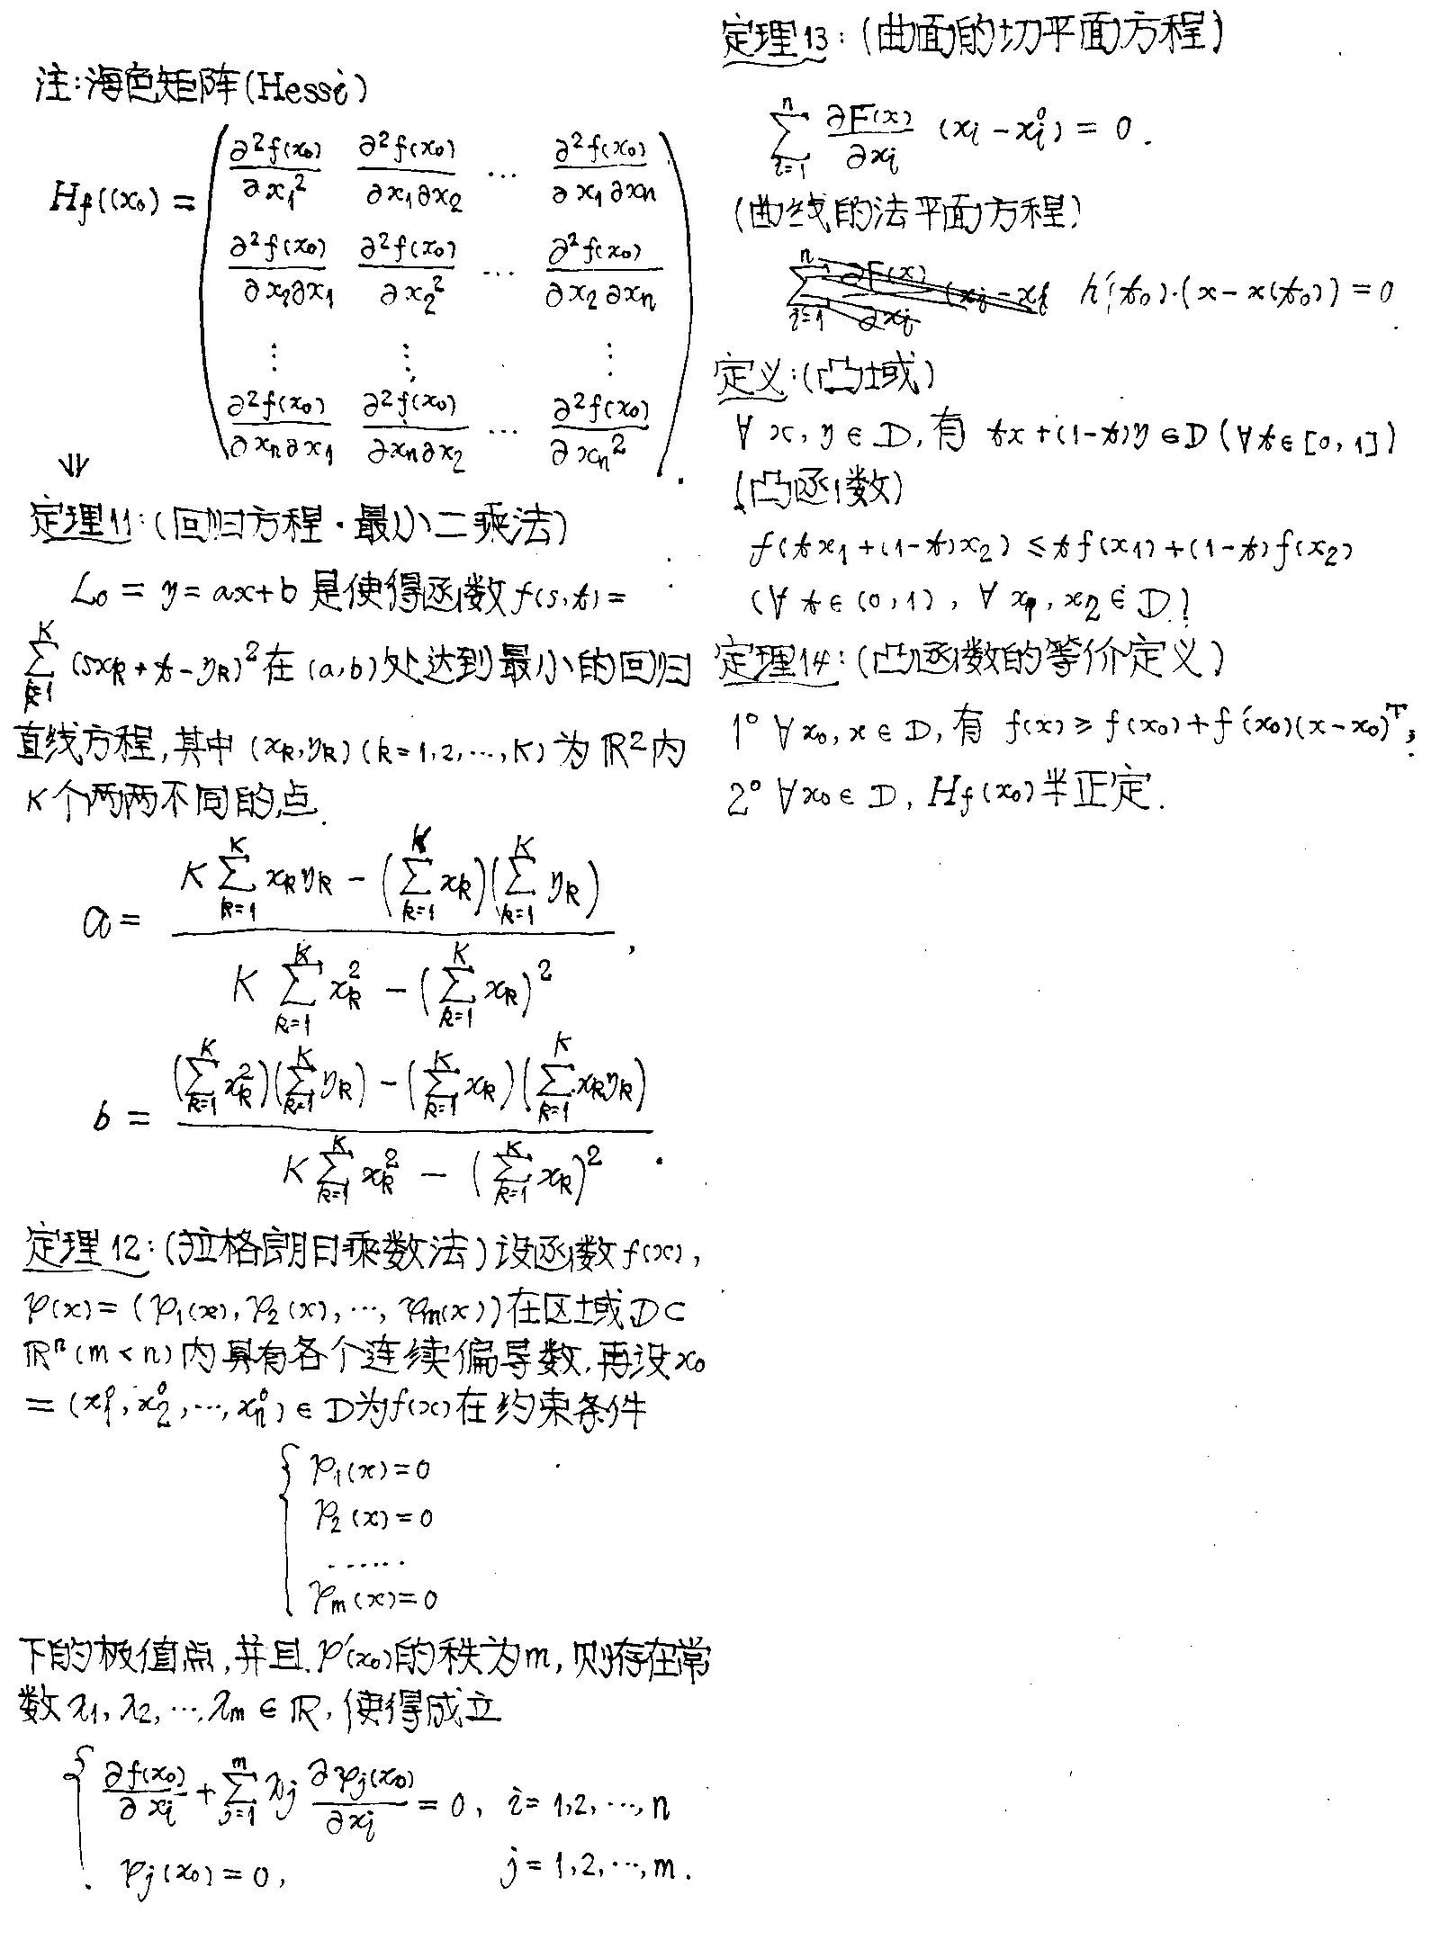 注:海色矩阵(Hessi)
H_f((x₀) = ( ∂²f(x₀)/∂x₁² ∂²f(x₀)/∂x₁∂x₂ … ∂²f(x₀)/∂x₁∂xn
∂²f(x₀)/∂x₂∂x₁ ∂²f(x₀)/∂x₂² … ∂²f(x₀)/∂x₂∂xn
⋮ ⋮ ⋮
∂²f(x₀)/∂xn∂x₁ ∂²f(x₀)/∂xn∂x₂ … ∂²f(x₀)/∂xn² ).
⇓
定理11:(回归方程·最小二乘法)
L₀ = y = ax+b 是使得函数 f(s,t) =
∑_{k=1}^{K} (sx_k + t - y_k)² 在 (a,b) 处达到最小的回归
直线方程,其中 (x_k, y_k) (k = 1,2,…,K) 为 ℝ² 内
K个两两不同的点.
a = [K ∑_{k=1}^{K} x_k y_k - (∑_{k=1}^{K} x_k)(∑_{k=1}^{K} y_k)] / [K ∑_{k=1}^{K} x_k² - (∑_{k=1}^{K} x_k)²],
b = [(∑_{k=1}^{K} x_k²)(∑_{k=1}^{K} y_k) - (∑_{k=1}^{K} x_k)(∑_{k=1}^{K} x_k y_k)] / [K ∑_{k=1}^{K} x_k² - (∑_{k=1}^{K} x_k)²].
定理12:(拉格朗日乘数法)设函数 f(x),
φ(x) = (φ₁(x), φ₂(x), …, φm(x)) 在区域 D⊂
ℝⁿ (m < n) 内具有各个连续偏导数,再设 x₀
= (x₁⁰, x₂⁰, …, xn⁰) ∈ D为f(x)在约束条件
{ φ₁(x) = 0
φ₂(x) = 0
……
φm(x) = 0
下的极值点,并且 φ′(x₀)的秩为m,则存在常
数 λ₁, λ₂, …, λm ∈ ℝ,使得成立
{ ∂f(x₀)/∂xi + ∑_{j=1}^{m} λj ∂φj(x₀)/∂xi = 0, i = 1,2,…,n
φj(x₀) = 0, j = 1,2,…,m.
定理13:(曲面的切平面方程)
∑_{i=1}^{n} ∂F(x)/∂xi (xi - xi⁰) = 0.
(曲线的法平面方程)
∑_{i=1}^{n} ∂F(x)/∂xi (xi - xi h′(t₀)·(x - x(t₀)) = 0
定义:(凸域)
∀ x, y ∈ D, 有 tx + (1-t)y ∈ D (∀ t ∈ [0, 1])
(凸函数)
f(tx₁ + (1-t)x₂) ≤ t f(x₁) + (1-t) f(x₂)
(∀ t ∈ (0,1), ∀ x₁, x₂ ∈ D.)
定理14:(凸函数的等价定义)
1° ∀ x₀, x ∈ D, 有 f(x) ≥ f(x₀) + f′(x₀)(x - x₀)ᵀ;
2° ∀ x₀ ∈ D, H_f(x₀) 半正定.